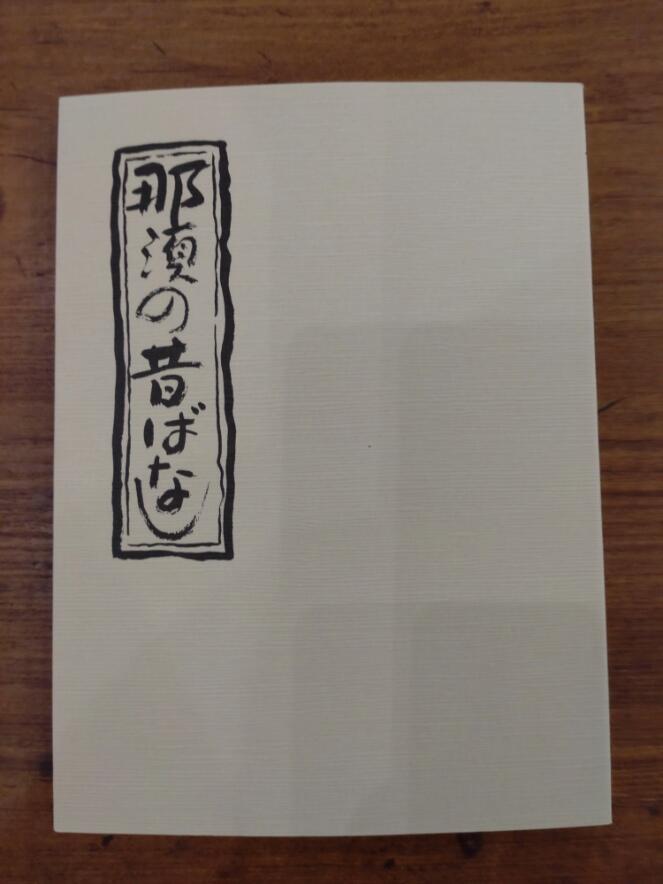 那須の昔ばなし